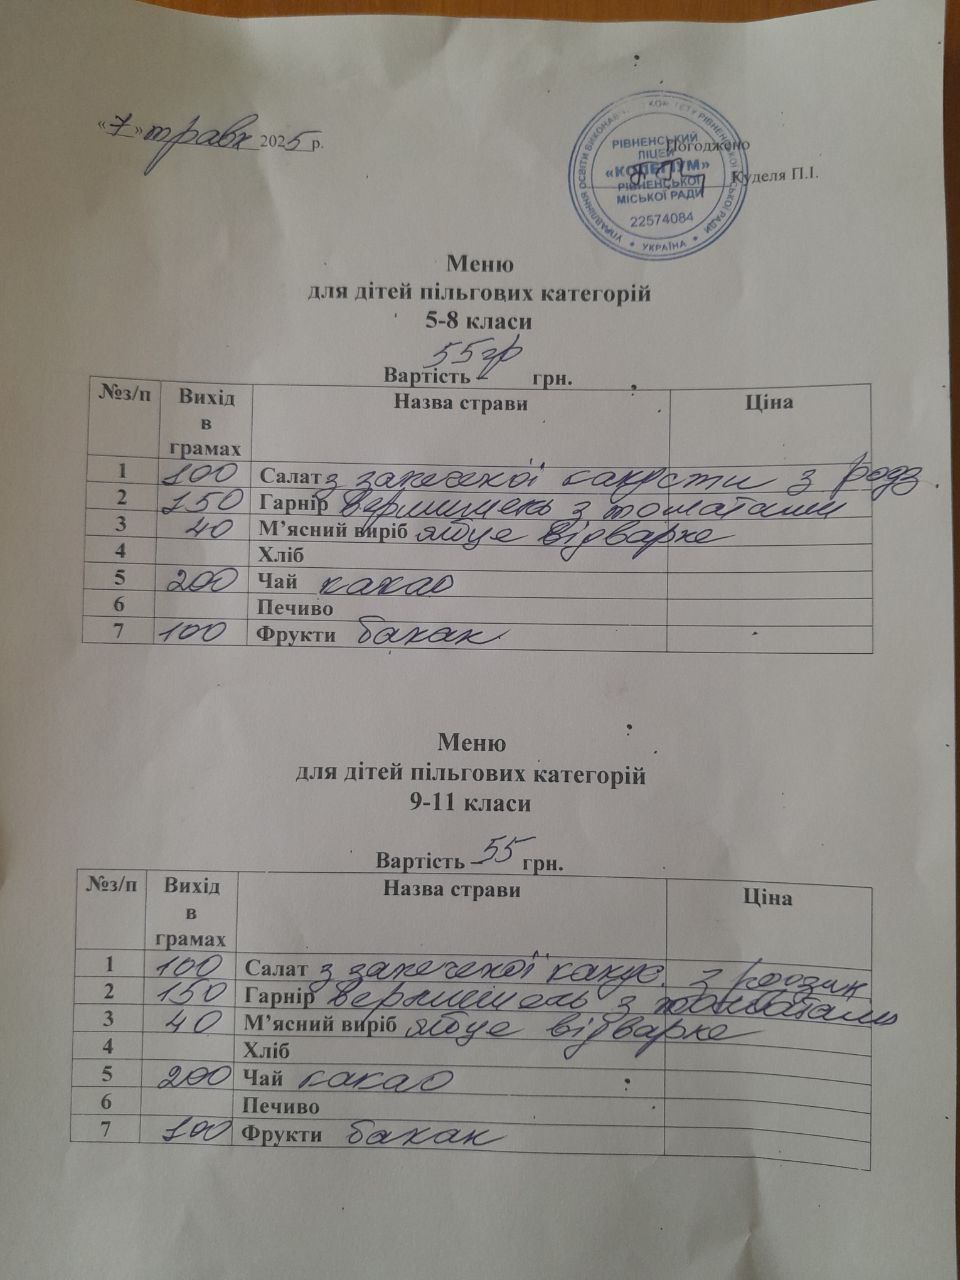 «7» травня 2025 р.
Погоджено
Куделя П.І.
УПРАВЛІННЯ ОСВІТИ ВИКОНАВЧОГО КОМІТЕТУ РІВНЕНСЬКОЇ МІСЬКОЇ РАДИ
РІВНЕНСЬКИЙ
ЛІЦЕЙ
«КОЛЕГІУМ»
РІВНЕНСЬКОЇ
МІСЬКОЇ РАДИ
22574084
УКРАЇНА
Меню
для дітей пільгових категорій
5-8 класи
Вартість – 55 гр грн.
№з/п Вихід в грамах Назва страви Ціна
1 100 Салат з запеченої капусти з родз
2 150 Гарнір вермішель з томатами
3 40 М’ясний виріб яйце відварне
4 Хліб
5 200 Чай какао
6 Печиво
7 100 Фрукти банан
Меню
для дітей пільгових категорій
9-11 класи
Вартість – 55 грн.
№з/п Вихід в грамах Назва страви Ціна
1 100 Салат з запеченої капус. з родзин
2 150 Гарнір вермішель з томатами
3 40 М’ясний виріб яйце відварне
4 Хліб
5 200 Чай какао
6 Печиво
7 100 Фрукти банан